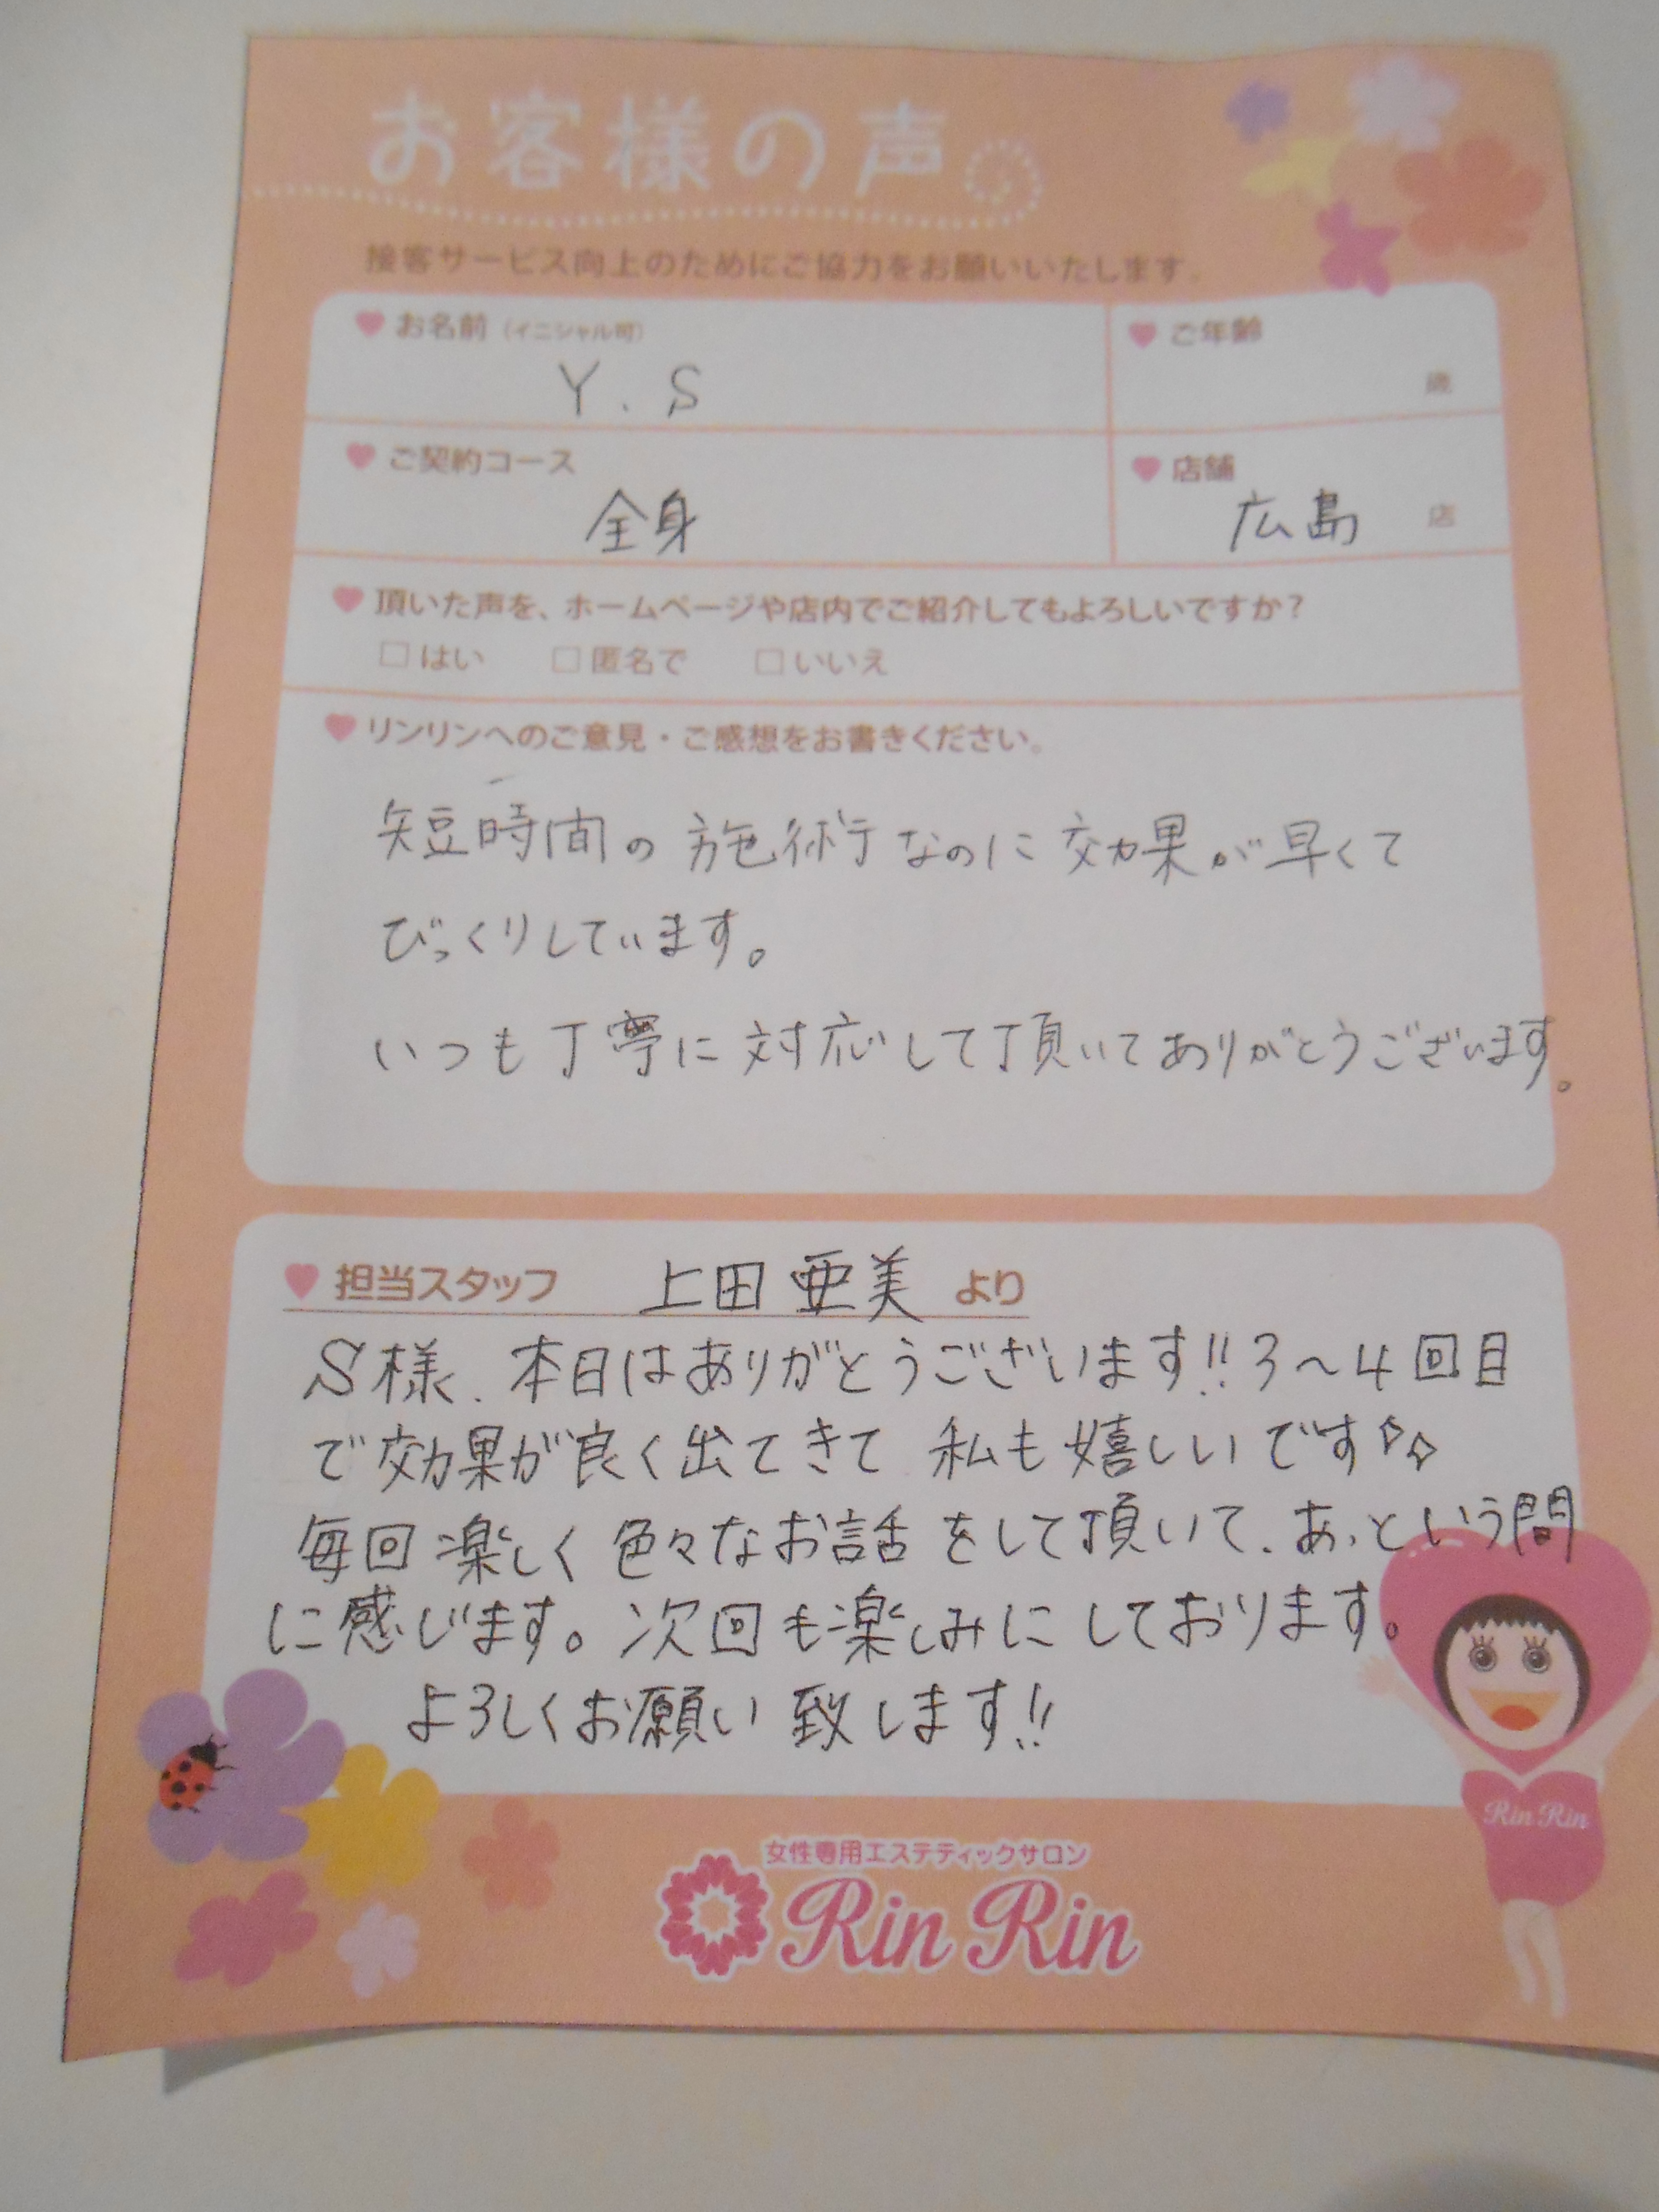 お客様の声
接客サービス向上のためにご協力をお願いいたします。
お名前（イニシャル可）
Y.S
ご年齢
歳
ご契約コース
全身
店舗
広島 店
頂いた声を、ホームページや店内でご紹介してもよろしいですか？
□はい □匿名で □いいえ
リンリンへのご意見・ご感想をお書きください。
短時間の施術なのに効果が早くて
びっくりしています。
いつも丁寧に対応して頂いてありがとうございます。
担当スタッフ 上田亜美 より
S様、本日はありがとうございます!!3～4回目
で効果が良く出てきて私も嬉しいです
毎回楽しく色々なお話をして頂いて、あっという間
に感じます。次回も楽しみにしております。
よろしくお願い致します!!
Rin Rin
女性専用エステティックサロン
Rin Rin